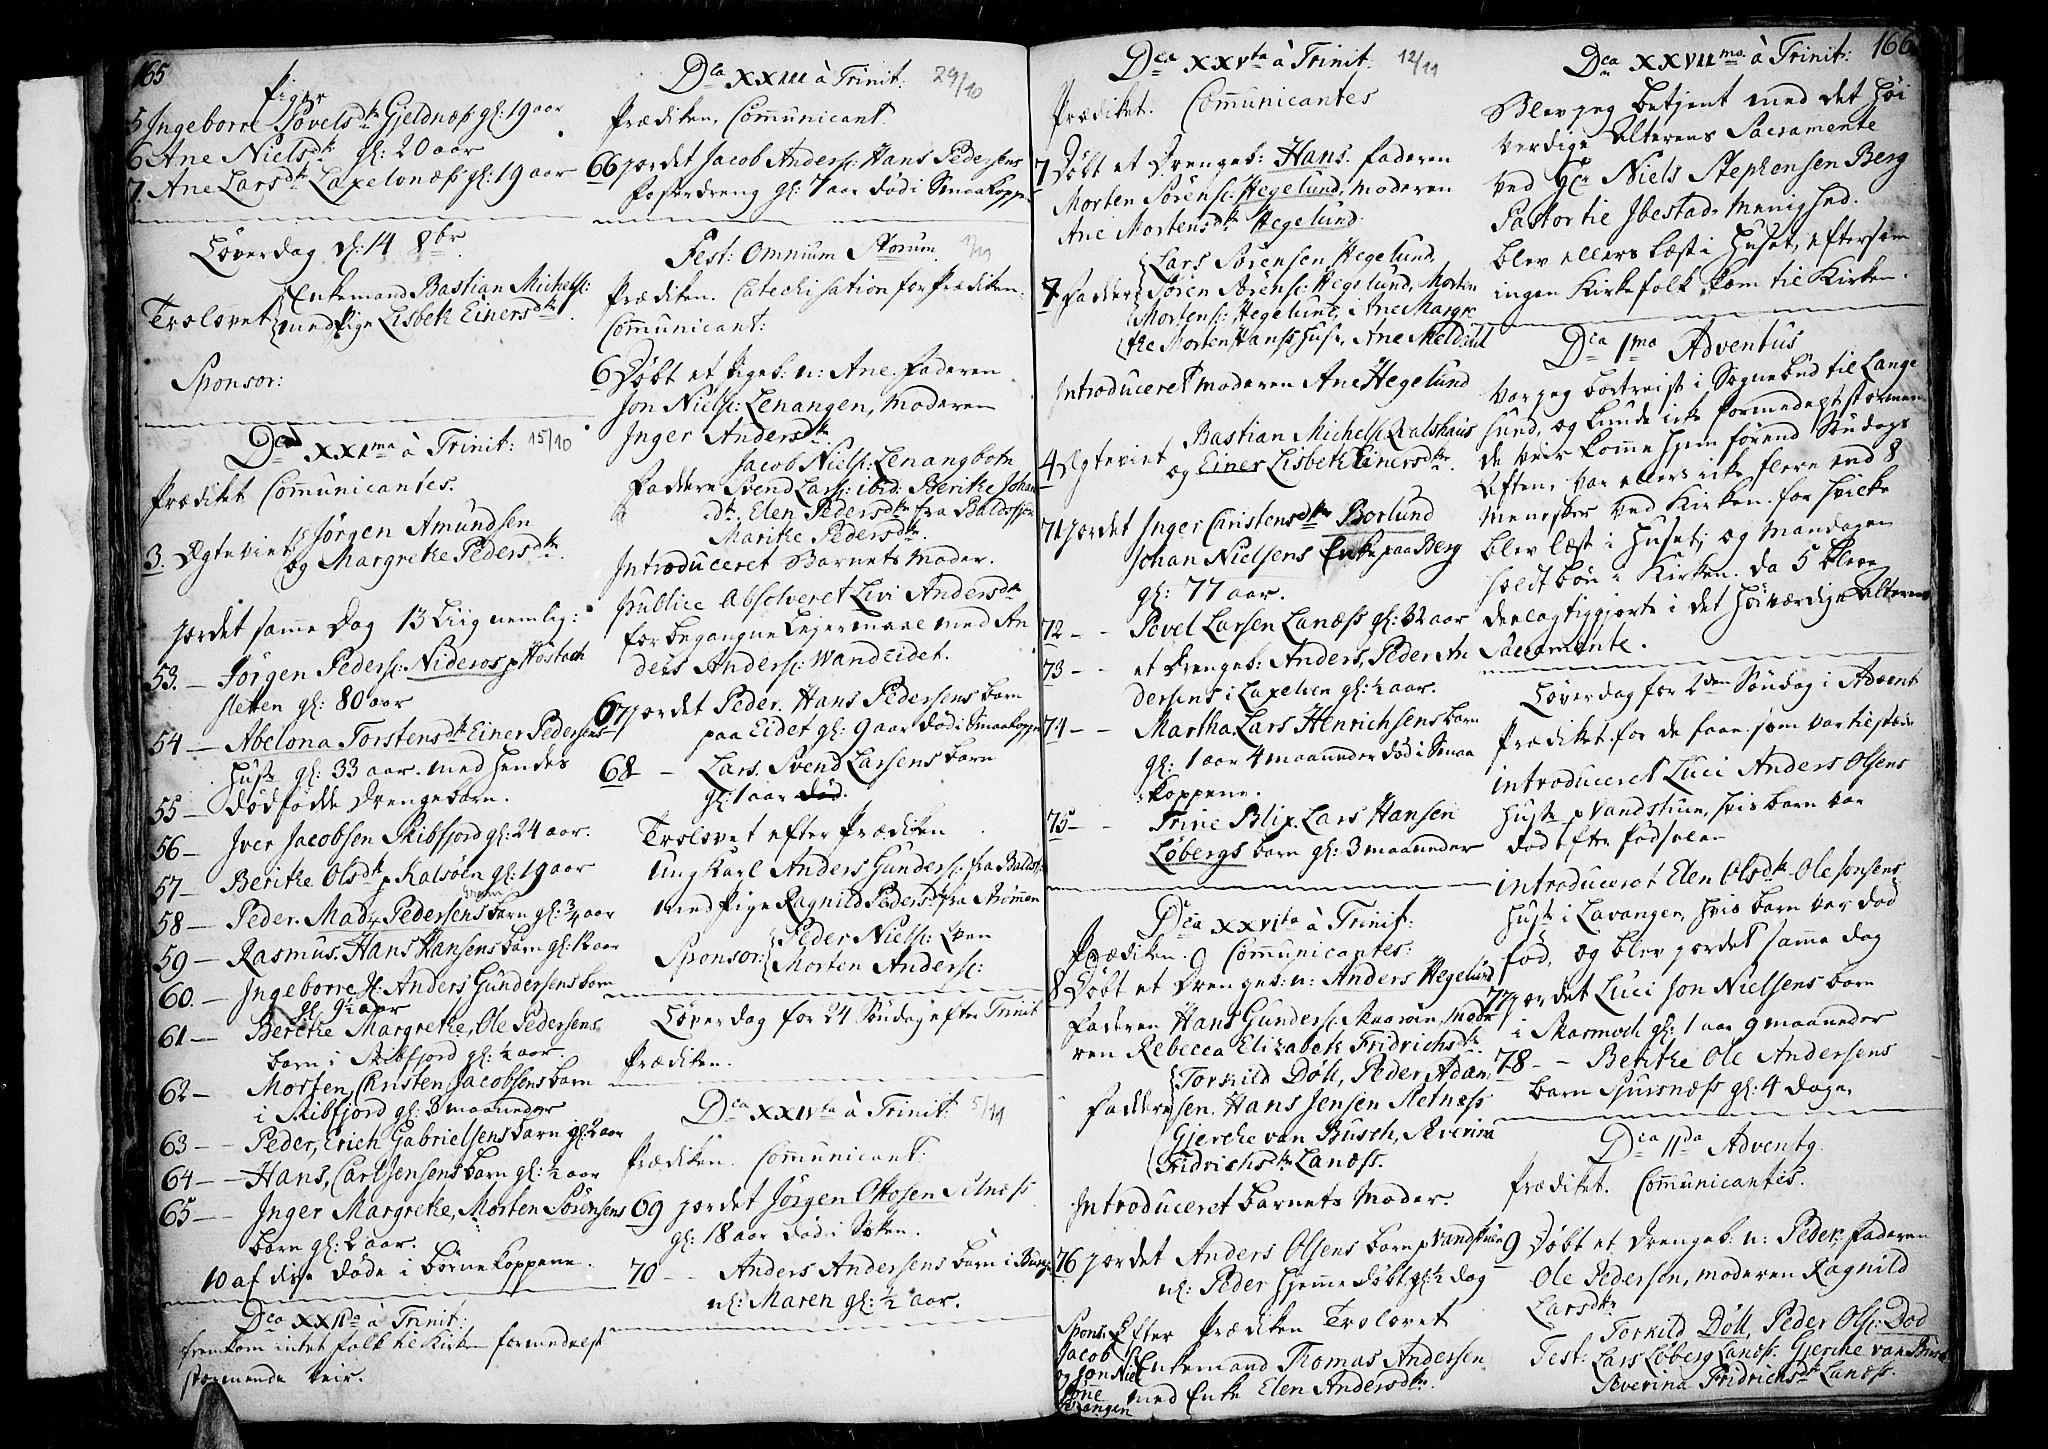 165
Piger
5 Ingeborre Povelsdtr Gjeldnæs gl: 19 aar
6 Ane Nielsdtr gl: 20 aar
7. Ane Larsdtr Laxelvnæs gl: 19 aar
Löverdag d: 14 8br.
Enkemand Bastian Michelss:
Trolovet med Pige Lisbeth Einersdtr.
Sponsor:
Dca XXIma à Trinit: 15/10
Prædiket Com̄unicantes.
Jörgen Amundsen
3. Egteviet og Margrethe Pedersdtr.
jordet sam̄e Dag 13 Liig nemlig:
53. — Jörgen Peders: Nideros p Hostach
sletten gl: 80 aar
54 — Abelona Torstensdtr Einer Pedersens
Hustr gl: 33 aar. med hendes
55 — dödfödde Drengebarn.
56 — Iver Jacobsen Skibfjord gl: 24 aar.
57 — Berithe Olsdtr p Kalsöen gl: 19 aar
58 — Peder. Mads Pedersens barn gl: 3/4 aar
59 — Rasmus. Hans Hansens barn gl: aar
60. — Ingeborre Anders Gundersens barn
gl: 9½ aar
61 — Berethe Margrethe, Ole Pedersens
barn i Skibfjord gl: ½ aar.
62 — Morten, Christen Jacobsens barn
i Skibfjord gl: 3 maaneder
63 — Peder, Erich Gabrielsens barn gl: 2 aar
64 — Hans, Carl Jensens barn gl: ½ aar
65 — Inger Margrethe, Morten Sörensens
barn gl: 2 aar.
10 af disse döde i börnekoppene.
Dca XXIIda à Trinit:
fremkom intet folk til Kirken formedelst
stormende Veir.
Dca XXIII à Trinit: 29/10
Prædiken. Com̄unicant
66 jordet Jacob Anders: Hans Pedersens
Fosterdreng gl: 7 aar död i Smaakopper
Fest: Omnium Storum. 1/11
Prædiken. Catechisation for Prædiken:
Com̄unicant:
6 Döbt et Pigeb: n: Ane. Faderen
Jon Niels: Lenangen, Moderen
Inger Andersdtr
Jacob Niels: Lenangbotn
Faddere Svend Lars: ibid: Berithe Johan
dtr. Elen Pedersdtr fra Baldsfjor
Marithe Pedersdtr.
Introduceret Barnets Moder.
Publice Absolveret Livi Andersdtr
for begangne Lejermaal med An
ders Anders: Wandeidet.
67 jordet Peder. Hans Pedersens barn
paa Eidet gl: 9 aar död i Smaakopper
68 — Lars. Svend Larsens barn
gl: 1 aar död.
Trolovet efter Prædiken
Ung Karl Anders Gunders: fra Balds
med Pige Ragnild Pedersdtr fra Strömmen
Peder Niels:
Sponsor: Morten Anders:
Löverdag for 24 Söndag efter Trinit
Prædiken.
Dca XXIVta à Trinit: 5/11
Prædiken. Com̄unicant:
69 jordet Jörgen Ottosen Selnæss
gl: 18 aar död i
70 — — Anders Andersens barn i
nl: Maren gl: ½ aar.
Dca XXVta à Trinit: 12/11
Prædiket. Com̄unicantes
7 Döbt et Drengeb: Hans. Faderen
Morten Sörens: Hegelund, Moderen
Ane Mortensdtr Hegelund.
Lars Sörensen Hegelund,
7 Faddere Sören Sörens: Hegelund, Morten
Mortens: Hegelund, Ane Margre
the Morten Hans: Hust, Ane Meldahl
Introduceret Moderen Ane Hegelund
Bastian Michels: Qvalshaus
4 Egteviet og Einer Lisbeth Einersdtr.
71 jordet Inger Christensdtr Borlund
Johan Nielsens Enke paa Berg
gl: 77 aar.
72 — — Povel Larsen Lanæss gl: 32 aar
73 — — et Drengeb: Anders, Peder An
dersens i Laxelven gl: ½ aar.
74 — — Martha Lars Henrichsens barn
gl: 1 aar 4 maaneder död i Smaa
koppene.
75 — — Trine Blix. Lars Hansen
Löbergs barn gl: 3 maaneder
Dca XXVIta à Trinit:
Prædiken. Com̄unicantes:
8 Döbt et Drengeb: n: Anders Hegelund
Faderen Hans Gunders: Skaaröen, Mode
ren Rebecca Elizabeth Fridrichsdtr
Torkild Döll, Peder Adam
Faddere sen. Hans Jensen Setnæss
Gjerche van Busch, Severina
Fridrichsdtr Lanæss.
Introduceret barnets Moder.
76 jordet Anders Olsens barn p Vandstuen
nl: Peder hjemmedöbt gl: ½ dag
Efter Prædiken Trolovet
Enkemand Thomas Andersen
med Enke Elen Andersdtr.
Spons:
Jacob
og Jon Niel
söne
Lenangen
Dca XXVIIma à Trinit: 166
Blev jeg betjent med det höi
værdige Alterens Sacramente
ved Hr Niels Stephensen Berg
Pastor til Ibestads Menighed.
blev ellers læst i Huset, eftersom
ingen Kirkefolk kom til Kirken.
Dca 1ma Adventus
Var jeg bortreist i Sognebud til Lange
sund, og kunde icke formedelst stormen
de Veir komme hjem förend Söndags
Aften, var ellers icke flere end 8
Mennesker ved Kirken. for hvilke
blev læst i Huset; og Mandagen
holdt bön i Kirken. da 5 bleve
deelagtiggjorte i det höiværdige Alterens
Sacramente.
Löverdag for 2den Söndag i Advent
Prædiket. for de faae som var tilstæde
introduceret Luci Anders Olsens
Hustr p Vandstuen, hvis barn var
död efter Födselen
introduceret Elen Olsdtr Ole Jonsens
Hustr i Lavangen, hvis barn var död
föd, og blev jordet sam̄e dag
77 jordet Luci Jon Nielsens barn
i Skarmoch gl: 1 aar 9 maaneder
78 — — Berithe Ole Andersens
barn Sjursnæss gl: 4 dage.
Dca IIda Adventg.
Prædiket. Com̄unicantes.
9 Döbt et Drengeb: n: Peder, Faderen
Ole Pedersen, moderen Ragnild
Larsdtr
Torkild Döll, Peder Ols: Dod
Test: Lars Löberg Lanæss. Gjerche van Busch
Severina Fridrichsdtr Lanæss.